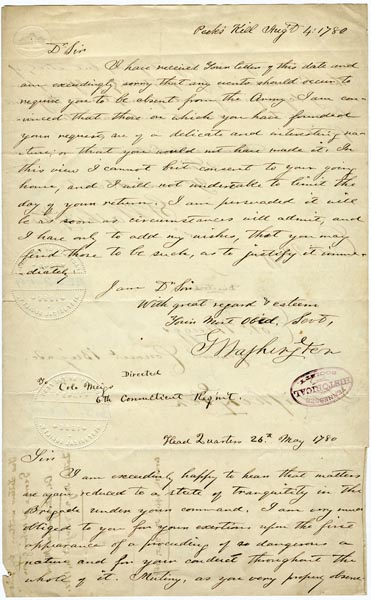 Peeks Kill Augt 4. 1780
Dr Sir
I have received Your letter of this date and
am exceedingly sorry that any events should occur to
require you to be absent from the Army. I am con-
vinced that those on which you have founded
your request, are of a delicate and interesting na-
ture, or that you would not have made it. In
this view I cannot but consent to your going
home, and I will not undertake to limit the
day of your return. I am persuaded it will
be as soon as circumstances will admit, and
I have only to add my wishes, that you may
find those to be such, as to justify it imme-
diately.
I am Dr Sir
With great regard & esteem
Your Most Obed. Servt,
G Washington
Directed
To Colo. Meigs
6th Connecticut Regmt.
TENNESSEE
HISTORICAL
SOCIETY
Head Quarters 26th May 1780
Sir
I am exceedingly happy to hear that matters
are again reduced to a state of tranquility in the
Brigade under your command. I am very much
obliged to you for your exertions upon the first
appearance of a proceeding of so dangerous a
nature and for your conduct throughout the
whole of it. Mutiny, as you very properly observe